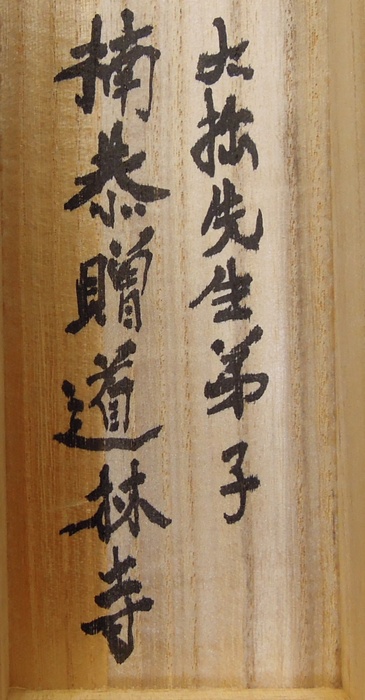 大拙先生弟子
楠恭贈道林寺